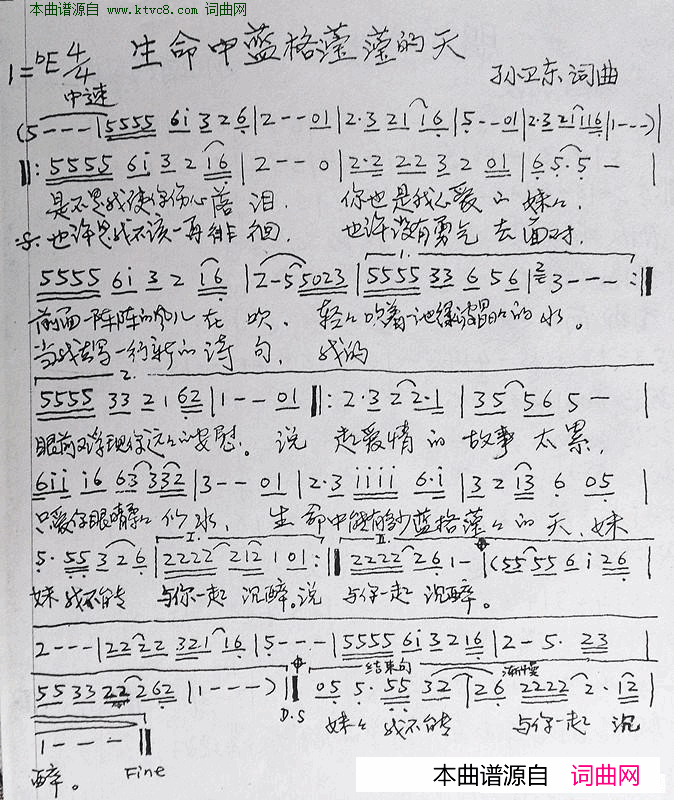 本曲谱源自
www.ktvc8.com 词曲网
生命中蓝格莹莹的天
1=bE 4/4
中速
孙卫东词曲
(5--- | 5555 6i 326 | 2--01 | 2·3 21 16 | 5--01 | 2·3 21 116 | 1---) |
‖: 5555 6i 32 16 | 2--0 | 2·2 22 32 01 | 6 5·5 - |
是不是我使你伤心落泪. 你也是我心爱的妹妹.
也许是我不该一再徘徊. 也许没有勇气去面对.
1.
5555 6i 32 16 | 2-5 5023 | 5555 33 6 56 | 3--- :‖
前面一阵阵的风儿在吹. 轻轻吹着一池绿波晶晶的水。
当我去写一行新的诗句. 我的
2.
5555 33 21 62 | 1--01 ‖: 2·3 22·1 | 35 56 5- |
眼前又浮现你远远的安慰。说起爱情的故事太累,
6ii i6 63 332 | 3--01 | 2·3 iiii 6·i | 32 i3 6 05 |
只爱你眼睛柔似水, 生命中能有多少蓝格莹莹的天、妹
I. II.
5· 55 326 | 2222 212 101 :‖ 2222 26 1- | (55 55 6i 26 |
妹我不能 与你一起沉醉。说 与你一起沉醉。
2--- | 22 22 321 16 | 5--- | 5555 6i 32 16 | 2-5· 23 |
结束句
渐慢
55 33 22 262 | 1---) ‖ 05 5·55 32 | 26 2222 2·12 |
D.S
妹妹我不能 与你一起沉
1--- ‖
醉。 Fine
本曲谱源自 词曲网